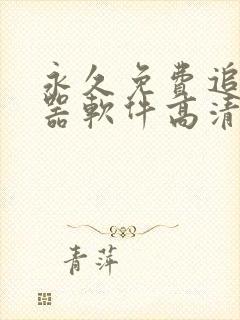 永久免费追
器软件高清
青萍